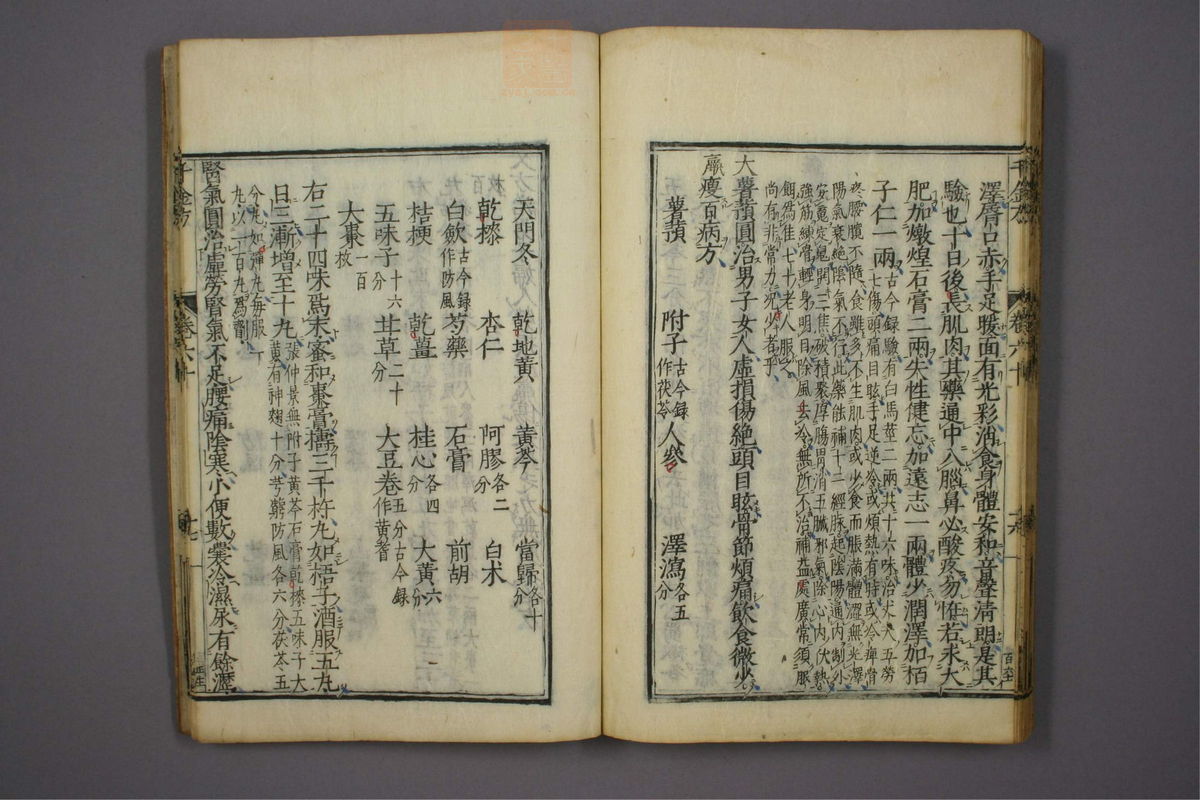 澤脣口赤手足暖面有光彩消食身體安和音聲清明是其
驗也十日後長肌肉其藥通中入腦鼻必酸疼勿怪若求大
肥加燉煌石膏二兩失性健忘加遠志一兩體少潤澤加栢
子仁一兩
古今録驗有白馬莖二兩共十六味治丈夫五勞
七傷頭痛目眩手足逆冷或煩熱有時或冷痺骨
疼腰髖不隨食雖多不生肌肉或少食而脹滿體澀無光澤
陽氣衰絶陰氣不行此藥能補十二經脉起陰陽通內制外
安魂定魄開三焦破積聚厚腸胃消五臟邪氣除心內伏熱
強筋練骨輕身明目除風去冷無所不治補益處廣常須服
餌爲佳七十老人服之
尚有非常力況少者乎
大薯蕷圓治男子女人虛損傷絶頭目眩骨節煩痛飲食微少
羸瘦百病方
薯蕷 附子古今録作茯苓 人參 澤瀉各五分
天門冬 乾地黃 黃芩 當歸各十分
乾𣾰 杏仁 阿膠各二分 白朮
白斂古今録作防風 芍藥 石膏 前胡
桔梗 乾薑 桂心各四分 大黃六分
五味子十六分 甘草二十分 大豆卷五分古今録作黃耆
大棗一百枚
右二十四味爲末蜜和棗膏擣三千杵丸如梧子酒服五丸
日三漸增至十丸
張仲景無附子黃芩石膏乾𣾰五味子大
黃有神麴十分芎藭防風各六分茯苓五
分丸如彈丸每服一
丸以一百丸爲劑
腎氣圓治虛勞腎氣不足腰痛陰寒小便數囊冷濕尿有餘瀝
千金方
卷六十